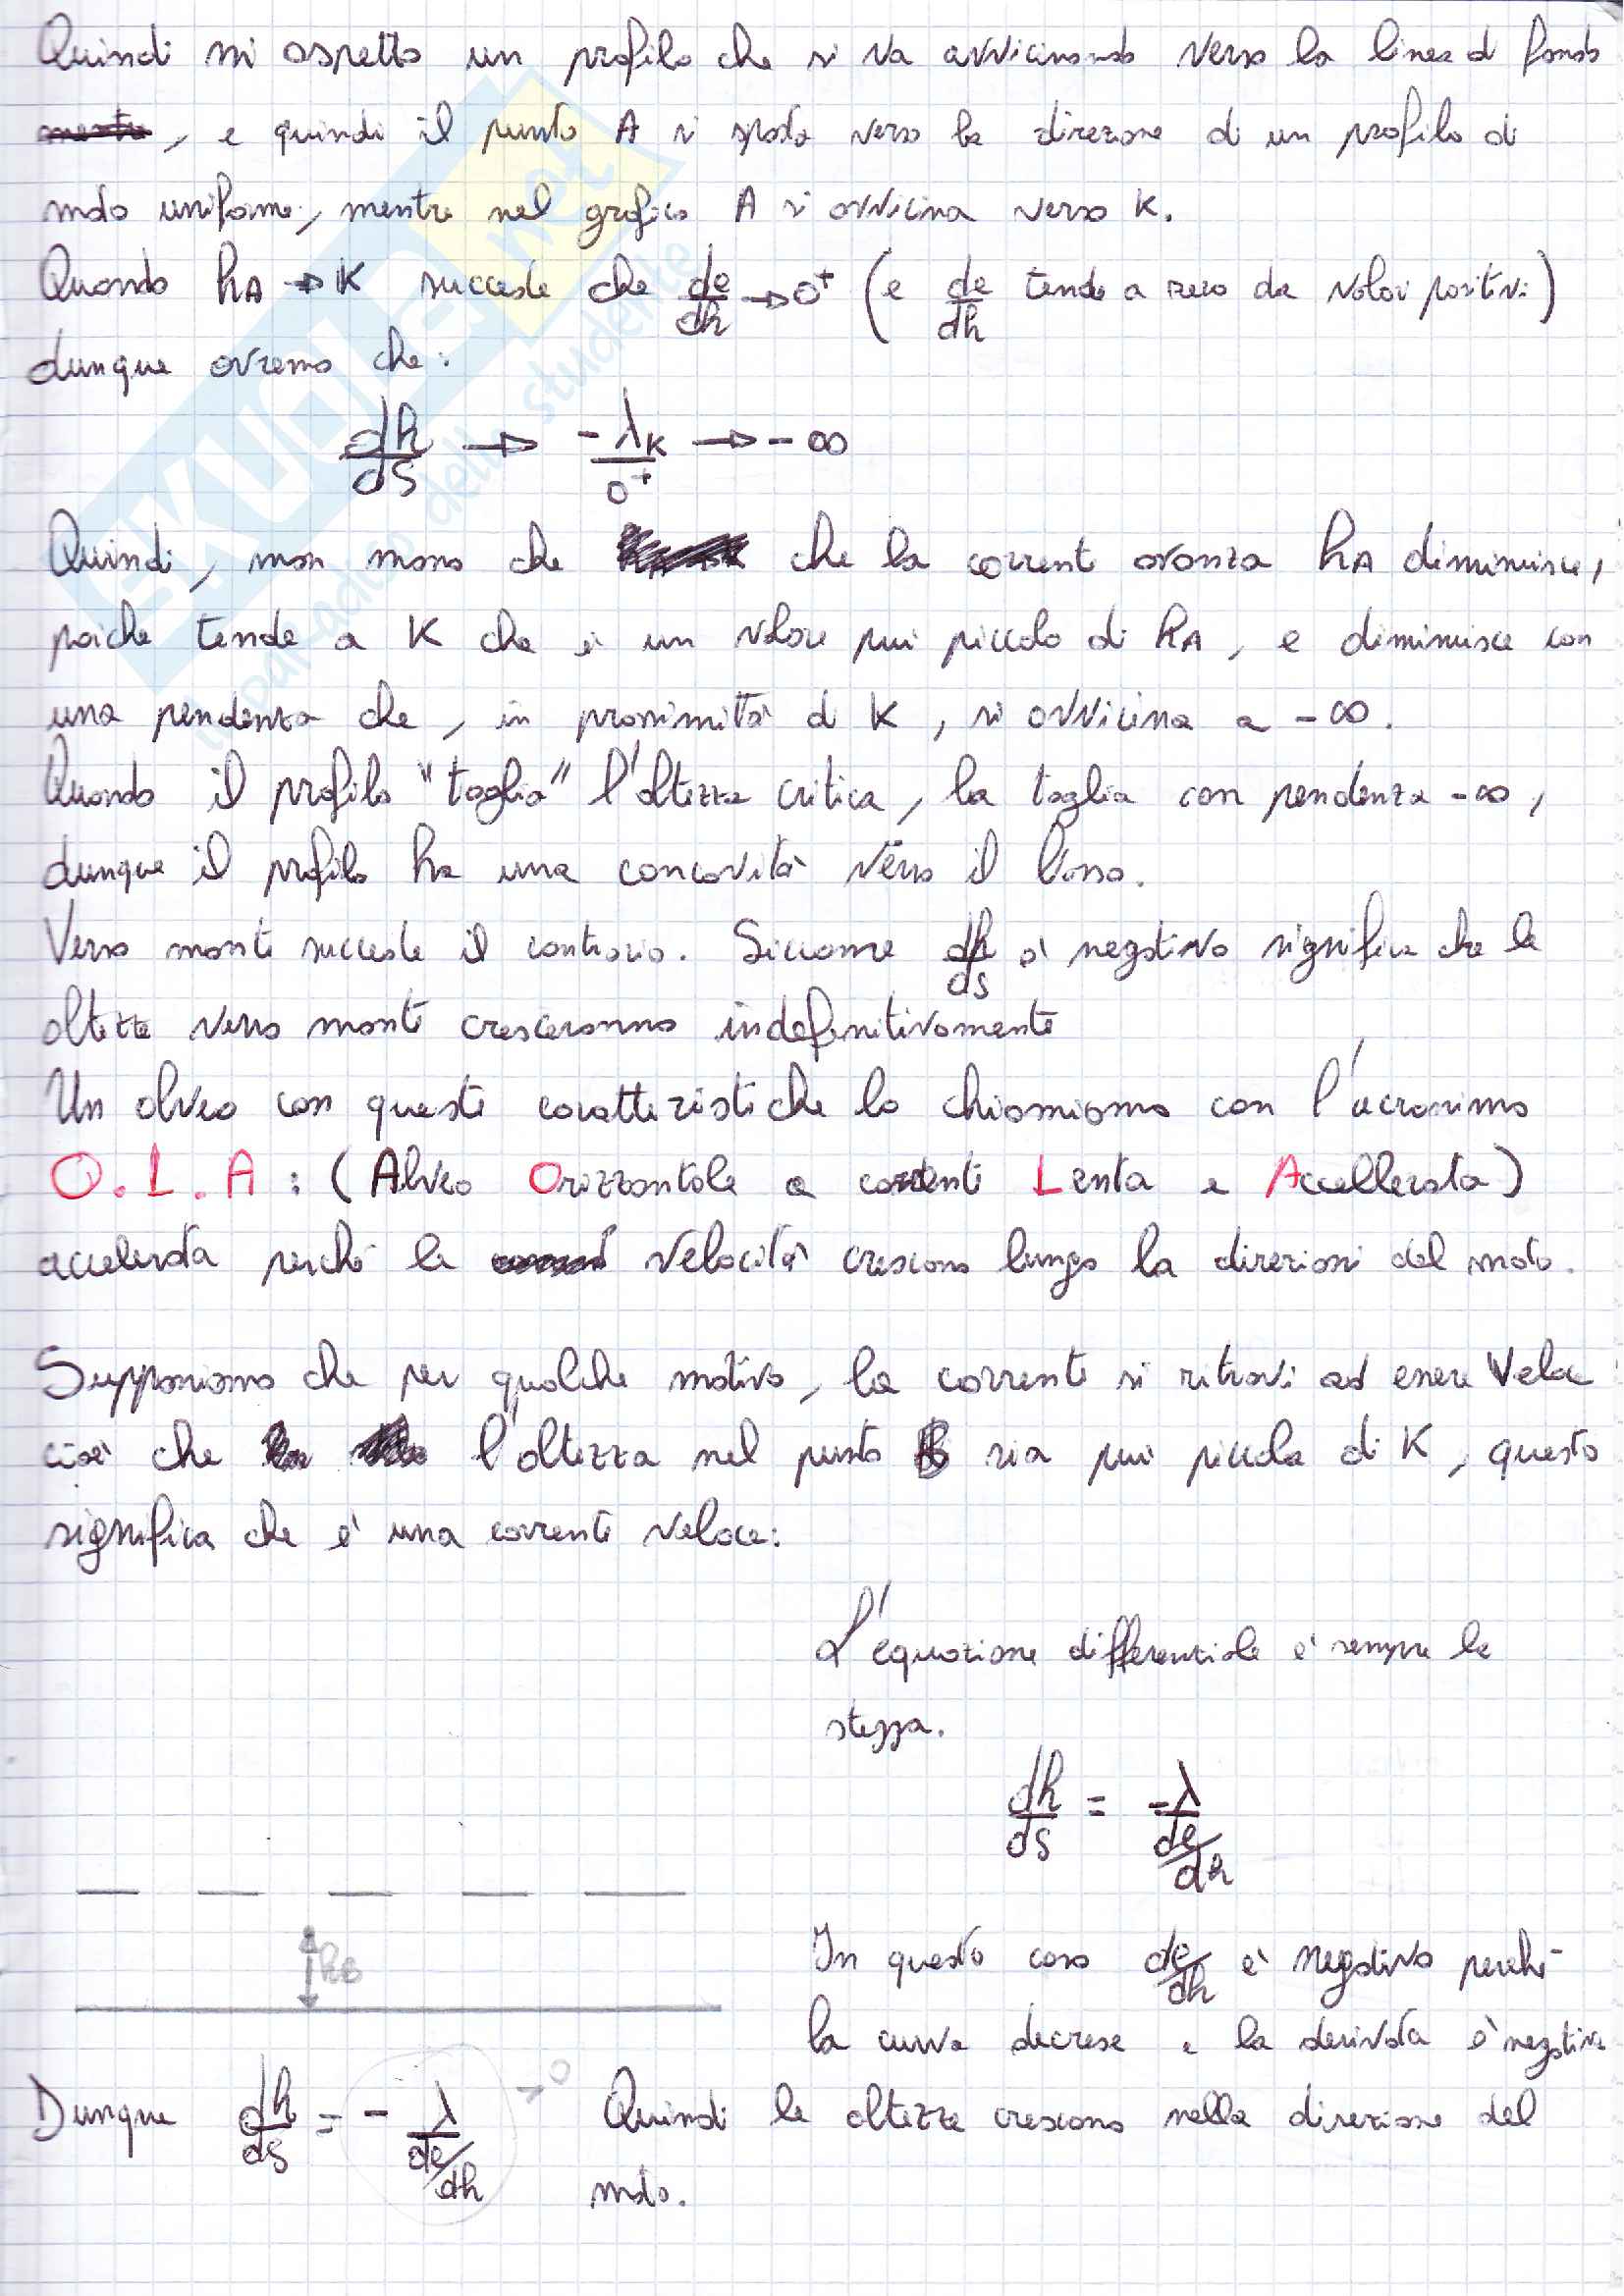 Quindi mi aspetto un profilo che si va avvicinando verso la linea di fondo
, e quindi il punto A si sposta verso la direzione di un profilo di
moto uniforme, mentre nel grafico A si avvicina verso K.
Quando hA → K succede che de/dh → 0⁺ (e de/dh tende a zero da valori positivi)
dunque avremo che:
dh/ds → -λK/0⁺ → -∞
Quindi, man mano che che la corrente avanza hA diminuisce,
poiche tende a K che è un valore più piccolo di hA, e diminuisce con
una pendenza che, in prossimità di K, si avvicina a -∞.
Quando il profilo "taglia" l'altezza critica, la taglia con pendenza -∞,
dunque il profilo ha una concavità verso il basso.
Verso monte succede il contrario. Siccome dh/ds è negativo significa che le
altezze verso monte cresceranno indefinitivamente
Un alveo con queste caratteristiche lo chiamiamo con l'acronimo
O.L.A: (Alveo Orizzontale a corrente Lenta e Accellerata)
accelerata perché le velocità crescono lungo la direzioni del moto.
Supponiamo che per qualche motivo, la corrente si ritrovi ad essere veloce
cioè che l'altezza nel punto B sia più piccola di K, questo
significa che è una corrente veloce:
L'equazione differenziale è sempre la
stessa.
dh/ds = -λ/de/dh
hB
In questo caso de/dh è negativo perché
la curva decrese e la derivata è negativa
Dunque dh/ds = - λ/de/dh > 0 Quindi le altezze crescono nella direzione del
moto.